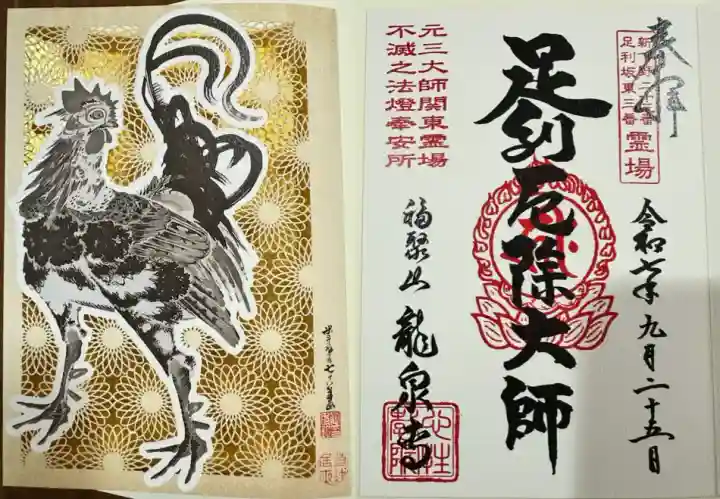 奉拝
足利坂東三番
霊場
令和七年九月二十五日
足利厄除大師
元三大師関東霊場
不滅之法燈奉安所
福聚山 龍泉寺